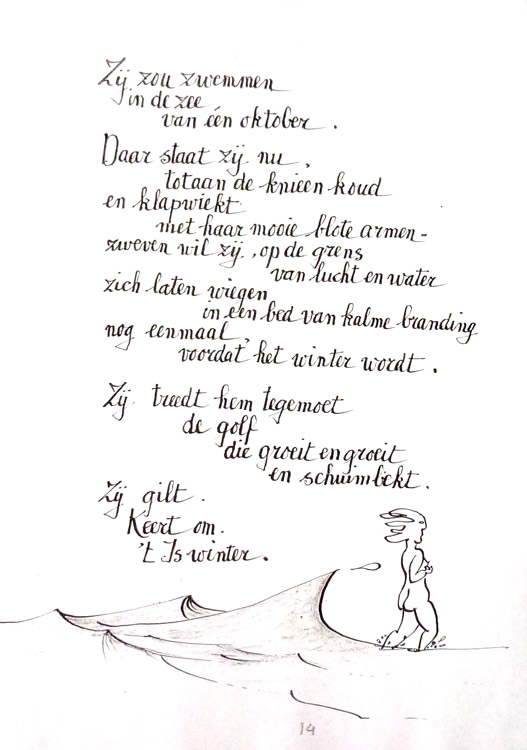 Zij zou zwemmen
in de zee
van één oktober.
Daar staat zij nu,
totaan de knieen koud
en klapwiekt
met haar mooie blote armen-
zweven wil zij, op de grens
van lucht en water
zich laten wiegen
in een bed van kalme branding
nog eenmaal,
voordat het winter wordt.
Zij treedt hem tegemoet
de golf
die groeit en groeit
en schuimbekt.
Zij gilt.
Keert om.
't Is winter.
14